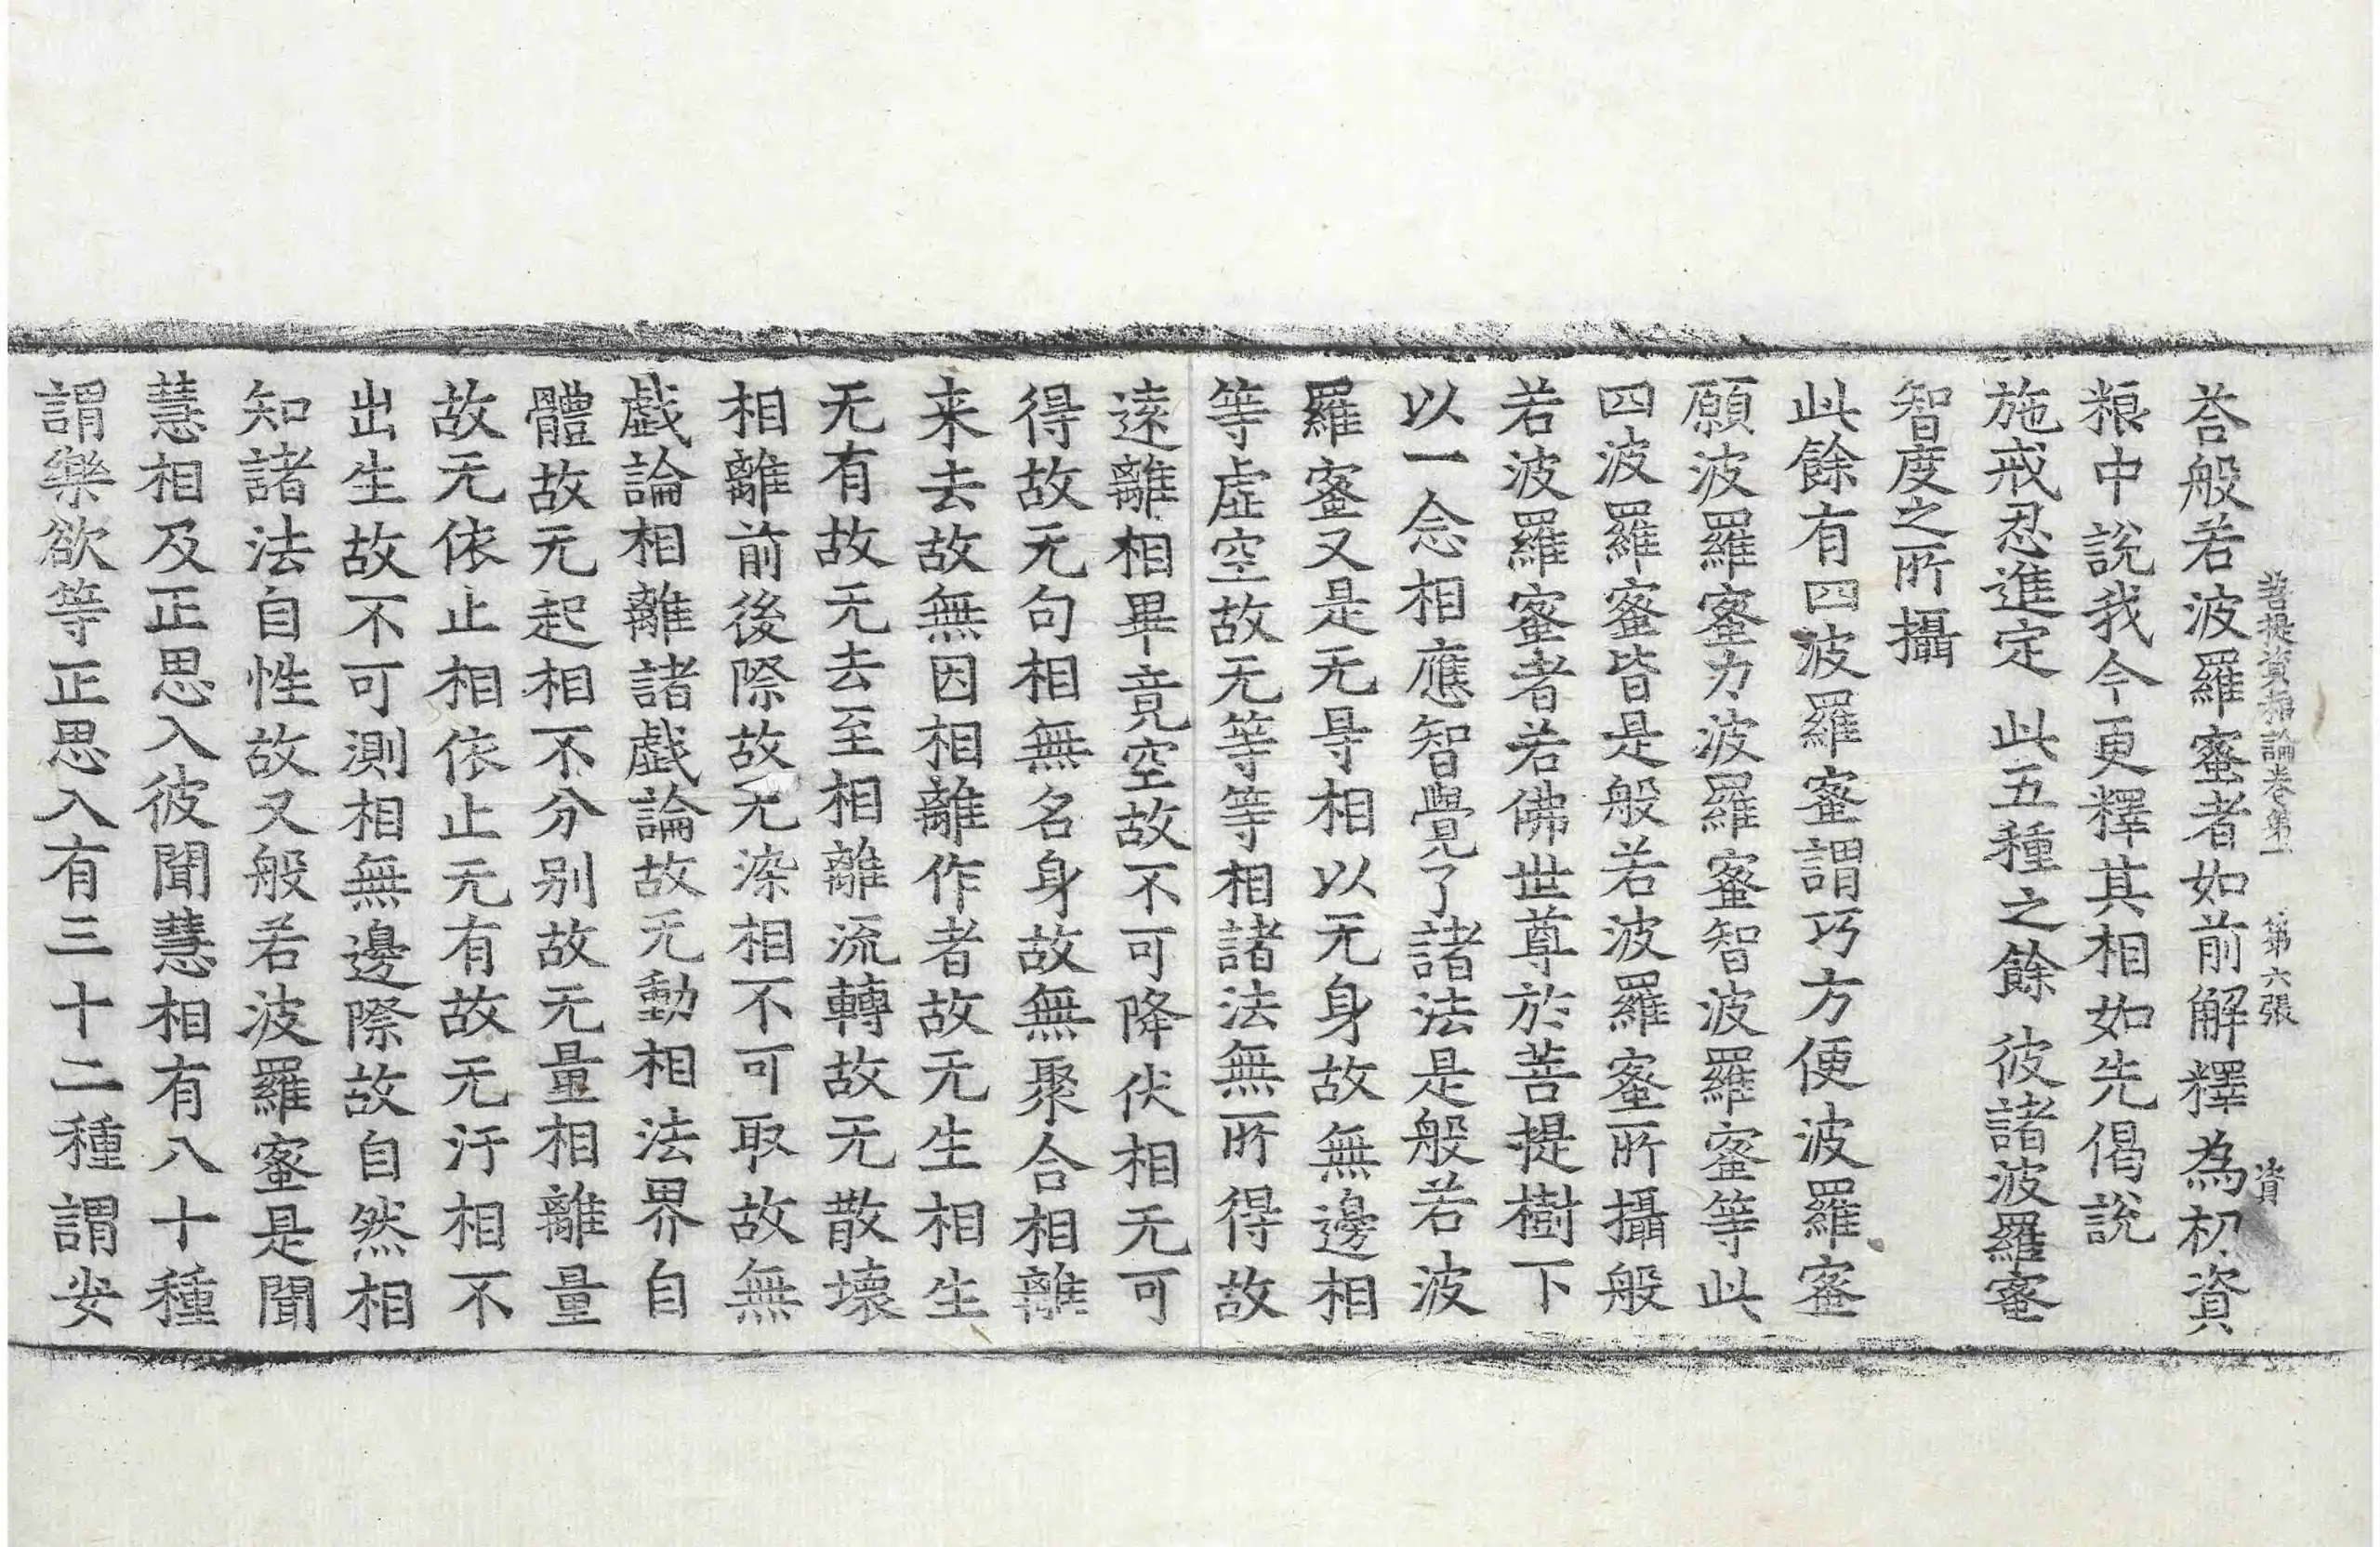 菩提資粮論卷第一　第六張　資
荅般若波羅蜜者如前解釋為初資
粮中說我今更釋其相如先偈說
施戒忍進定　此五種之餘　彼諸波羅蜜
智度之所攝
此餘有四波羅蜜謂巧方便波羅蜜
願波羅蜜力波羅蜜智波羅蜜等此
四波羅蜜皆是般若波羅蜜所攝般
若波羅蜜者若佛世尊於菩提樹下
以一念相應智覺了諸法是般若波
羅蜜又是无㝵相以无身故無邊相
等虛空故无等等相諸法無所得故
遠離相畢竟空故不可降伏相无可
得故无句相無名身故無聚合相離
来去故無因相離作者故无生相生
无有故无去至相離流轉故无散壞
相離前後際故无染相不可取故無
戯論相離諸戯論故无動相法界自
體故无起相不分别故无量相離量
故无依止相依止无有故无汙相不
出生故不可測相無邊際故自然相
知諸法自性故又般若波羅蜜是聞
慧相及正思入彼聞慧相有八十種
謂樂欲等正思入有三十二種謂安